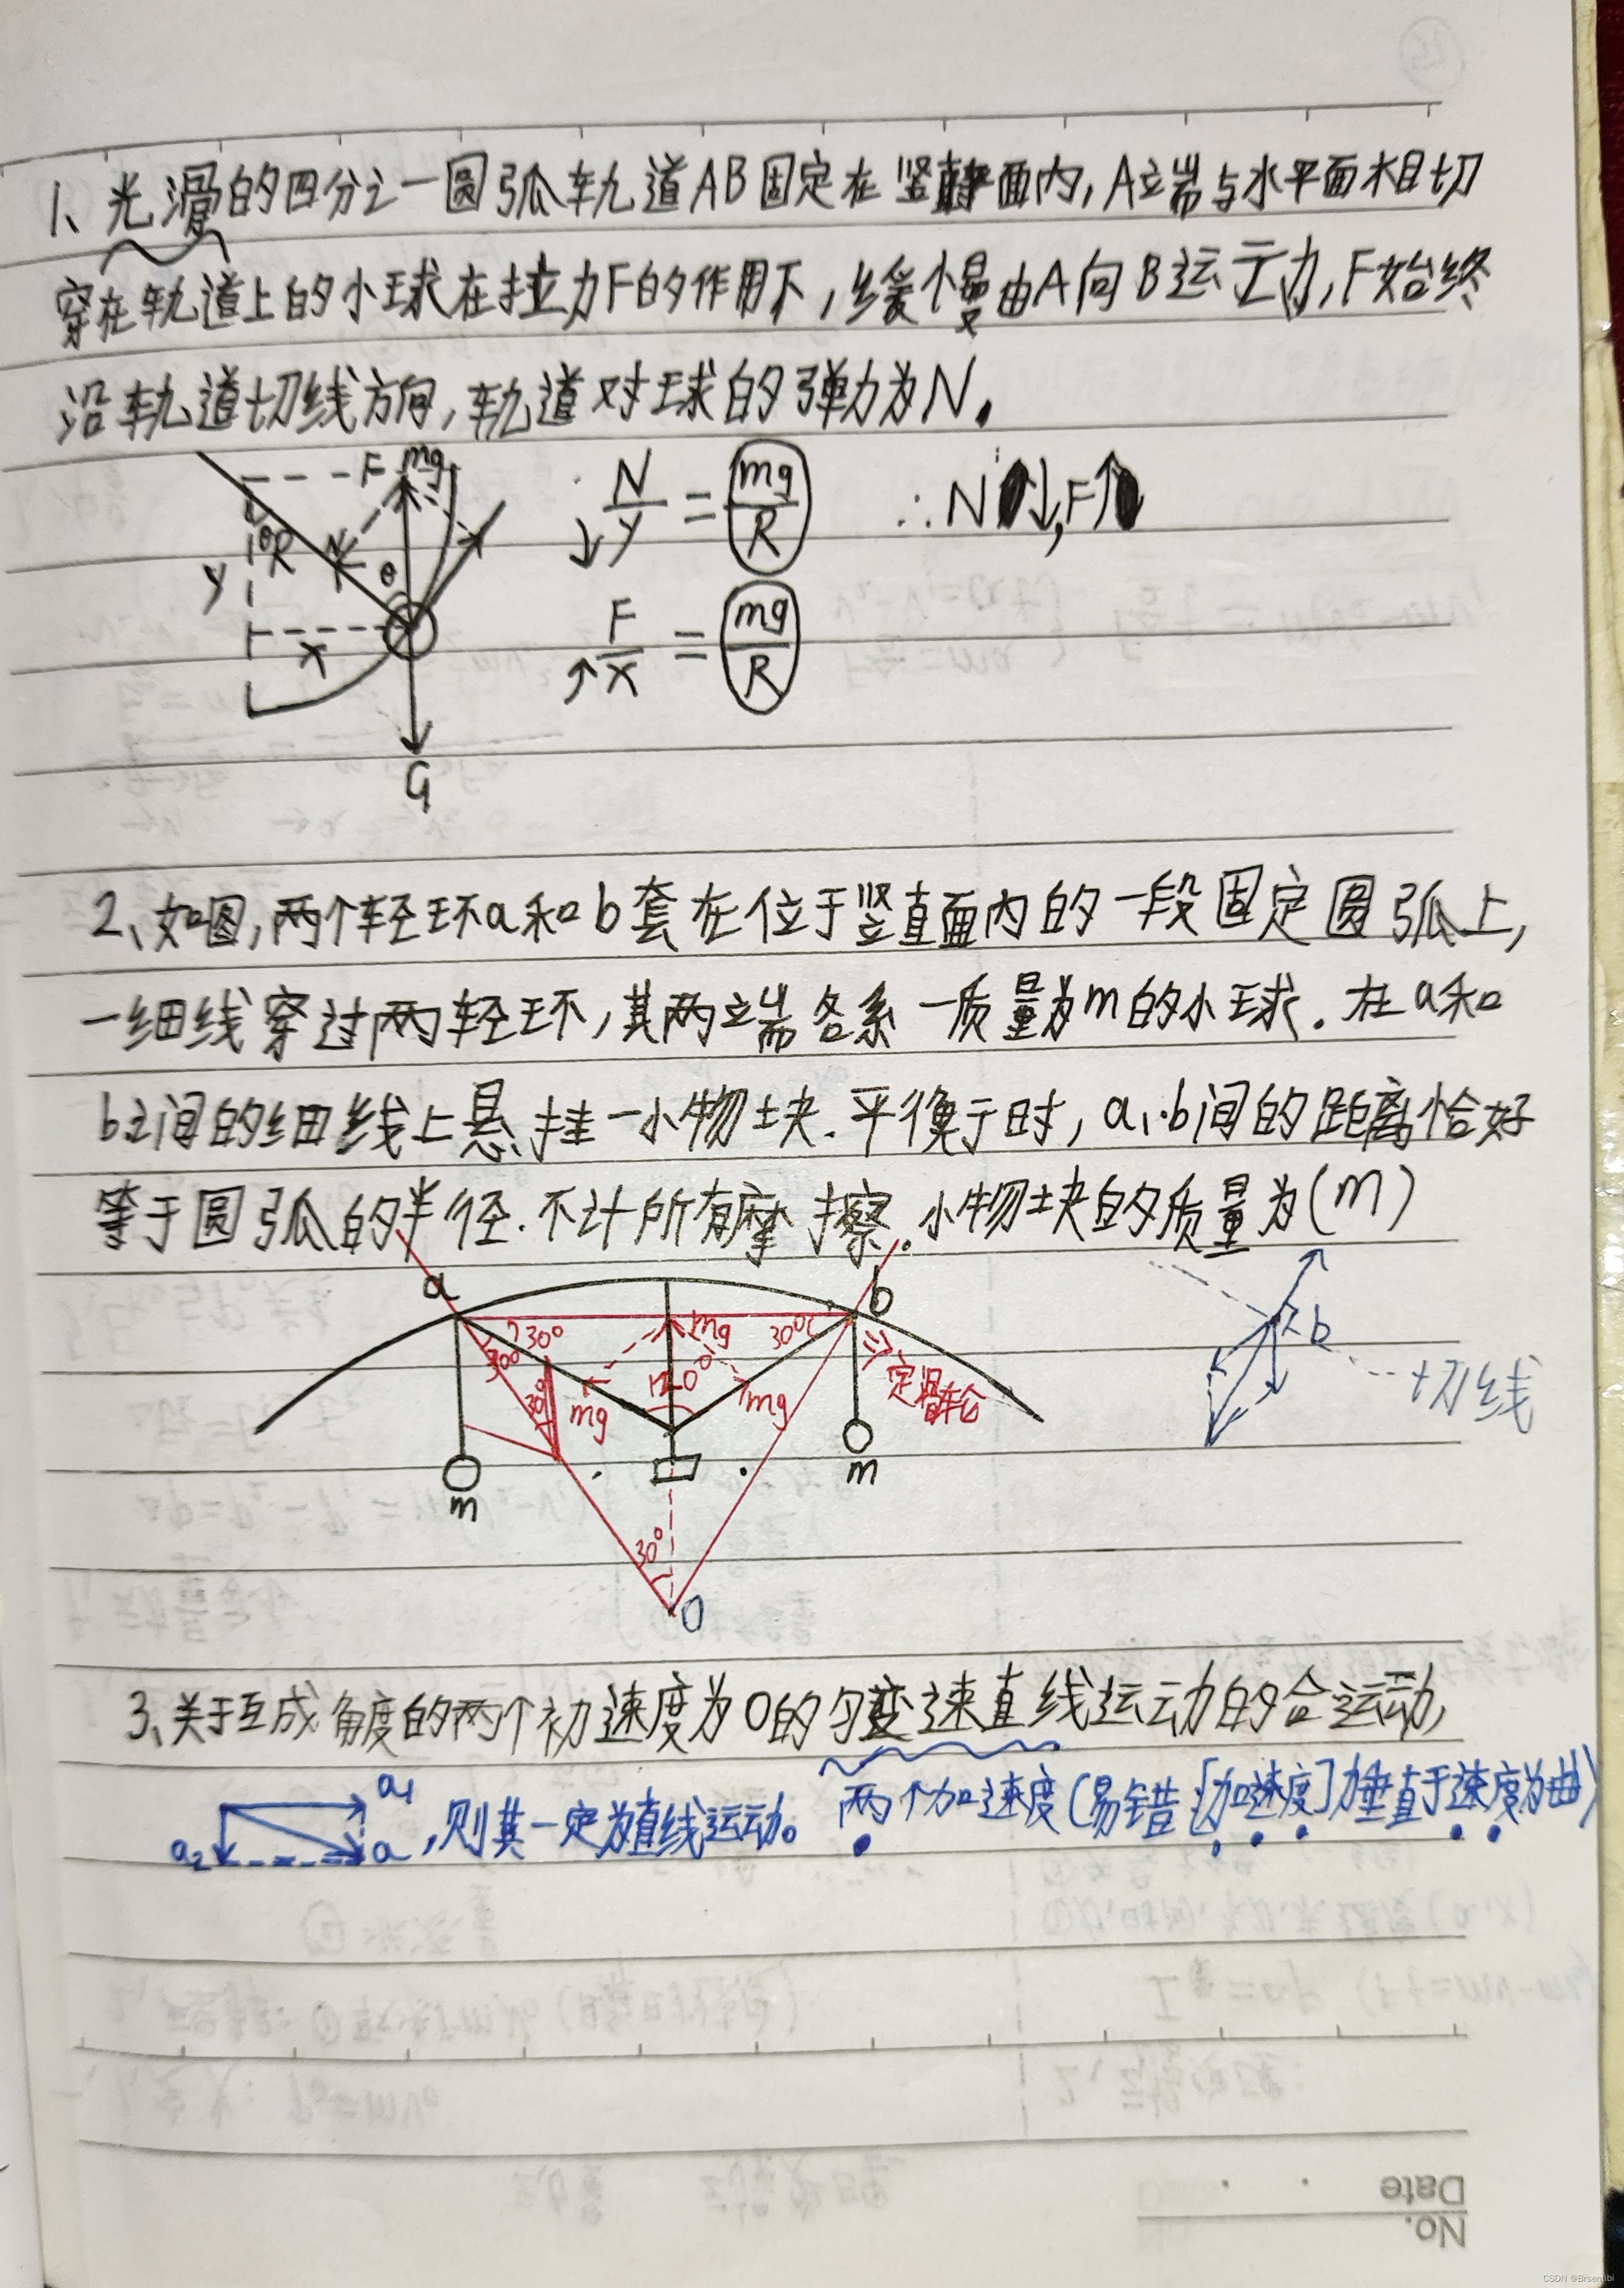 1、光滑的四分之一圆弧轨道AB固定在竖直面内,A端与水平面相切
穿在轨道上的小球在拉力F的作用下,缓慢由A向B运动,F始终
沿轨道切线方向,轨道对球的弹力为N.
F mg
θ R N θ
y
x
G
↓ N/y = mg/R ∴N↓,F↑
↑ F/x = mg/R
2、如图,两个轻环a和b套在位于竖直面内的一段固定圆弧上,
一细线穿过两轻环,其两端各系一质量为m的小球.在a和
b之间的细线上悬挂一小物块.平衡时,a、b间的距离恰好
等于圆弧的半径.不计所有摩擦.小物块的质量为(m)
a b
30° mg 30°
30° 120° 30°
mg mg
m m
30°
O
b
切线
3、关于互成角度的两个初速度为0的匀变速直线运动的合运动,
a1
a2 a ,则其一定为直线运动。两个加速度(易错[加速度]力垂直于速度为曲)
No.
Date
CSDN @Brsentibi